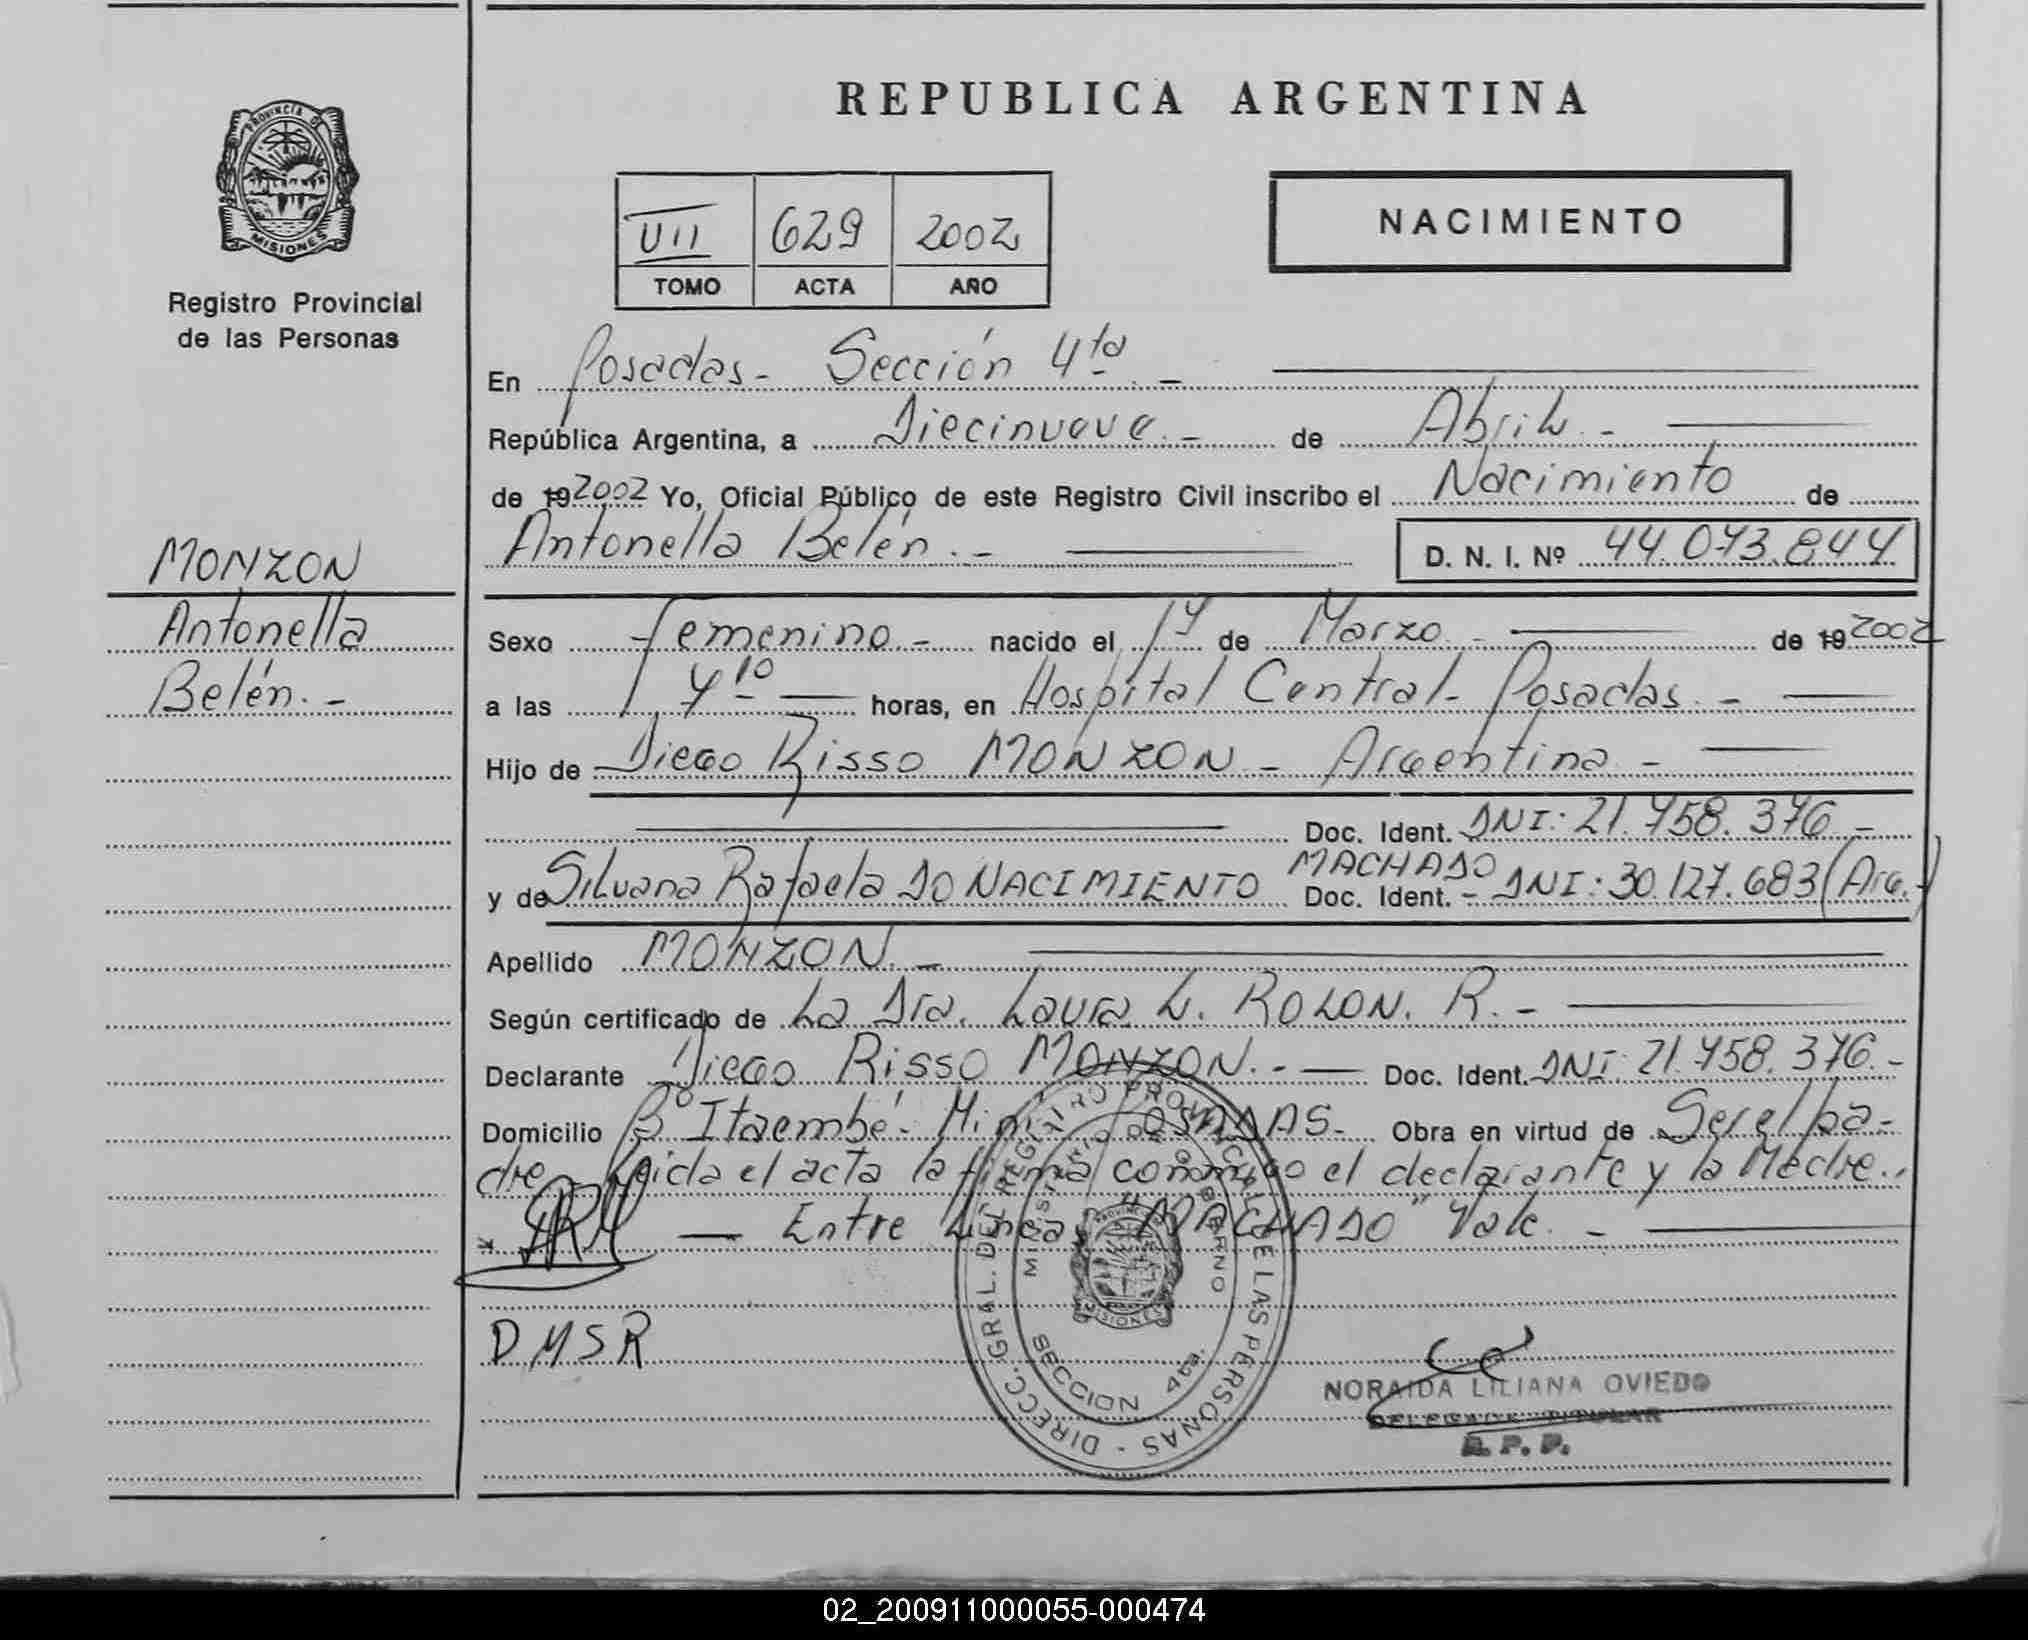 REPUBLICA ARGENTINA
PROVINCIA D
MISIONES
Registro Provincial
de las Personas
VII 629 2002
TOMO ACTA AÑO
NACIMIENTO
En Posadas- Sección 4ta. -
República Argentina, a Diecinueve. - de Abril. -
de 19 2002 Yo, Oficial Público de este Registro Civil inscribo el Nacimiento de
Antonella Belén. - D. N. I. Nº 44.073.844
MONZON
Antonella
Belén. -
Sexo Femenino. - nacido el 17 de Marzo. - de 19 2002
a las 7 10 horas, en Hospital Central- Posadas. -
Hijo de Diego Risso MONZON - Argentina -
Doc. Ident. DNI: 21.758.376 -
MACHADO
y de Silvana Rafaela DO NACIMIENTO Doc. Ident. - DNI: 30.127.683 (Arg.-)
Apellido MONZON. -
Según certificado de La Dra. Laura L. ROLON. R. -
Declarante Diego Risso MONZON. - Doc. Ident. DNI: 21.758.376. -
Domicilio Bº Itaembé- Miní POSADAS. Obra en virtud de Ser el pa-
dre - Leida el acta la firma conmigo el declarante y la Madre..
Entre Lineas "MACHADO" Vale. -
DMSR
DIRECC. GRAL. DEL REGISTRO PROVINCIAL DE LAS PERSONAS -
MINISTERIO DE GOBIERNO
PROVINCIA
MISIONES
SECCION 4ta.
NORAIDA LILIANA OVIEDO
DELEGADA TITULAR
R. P. P.
02_200911000055-000474